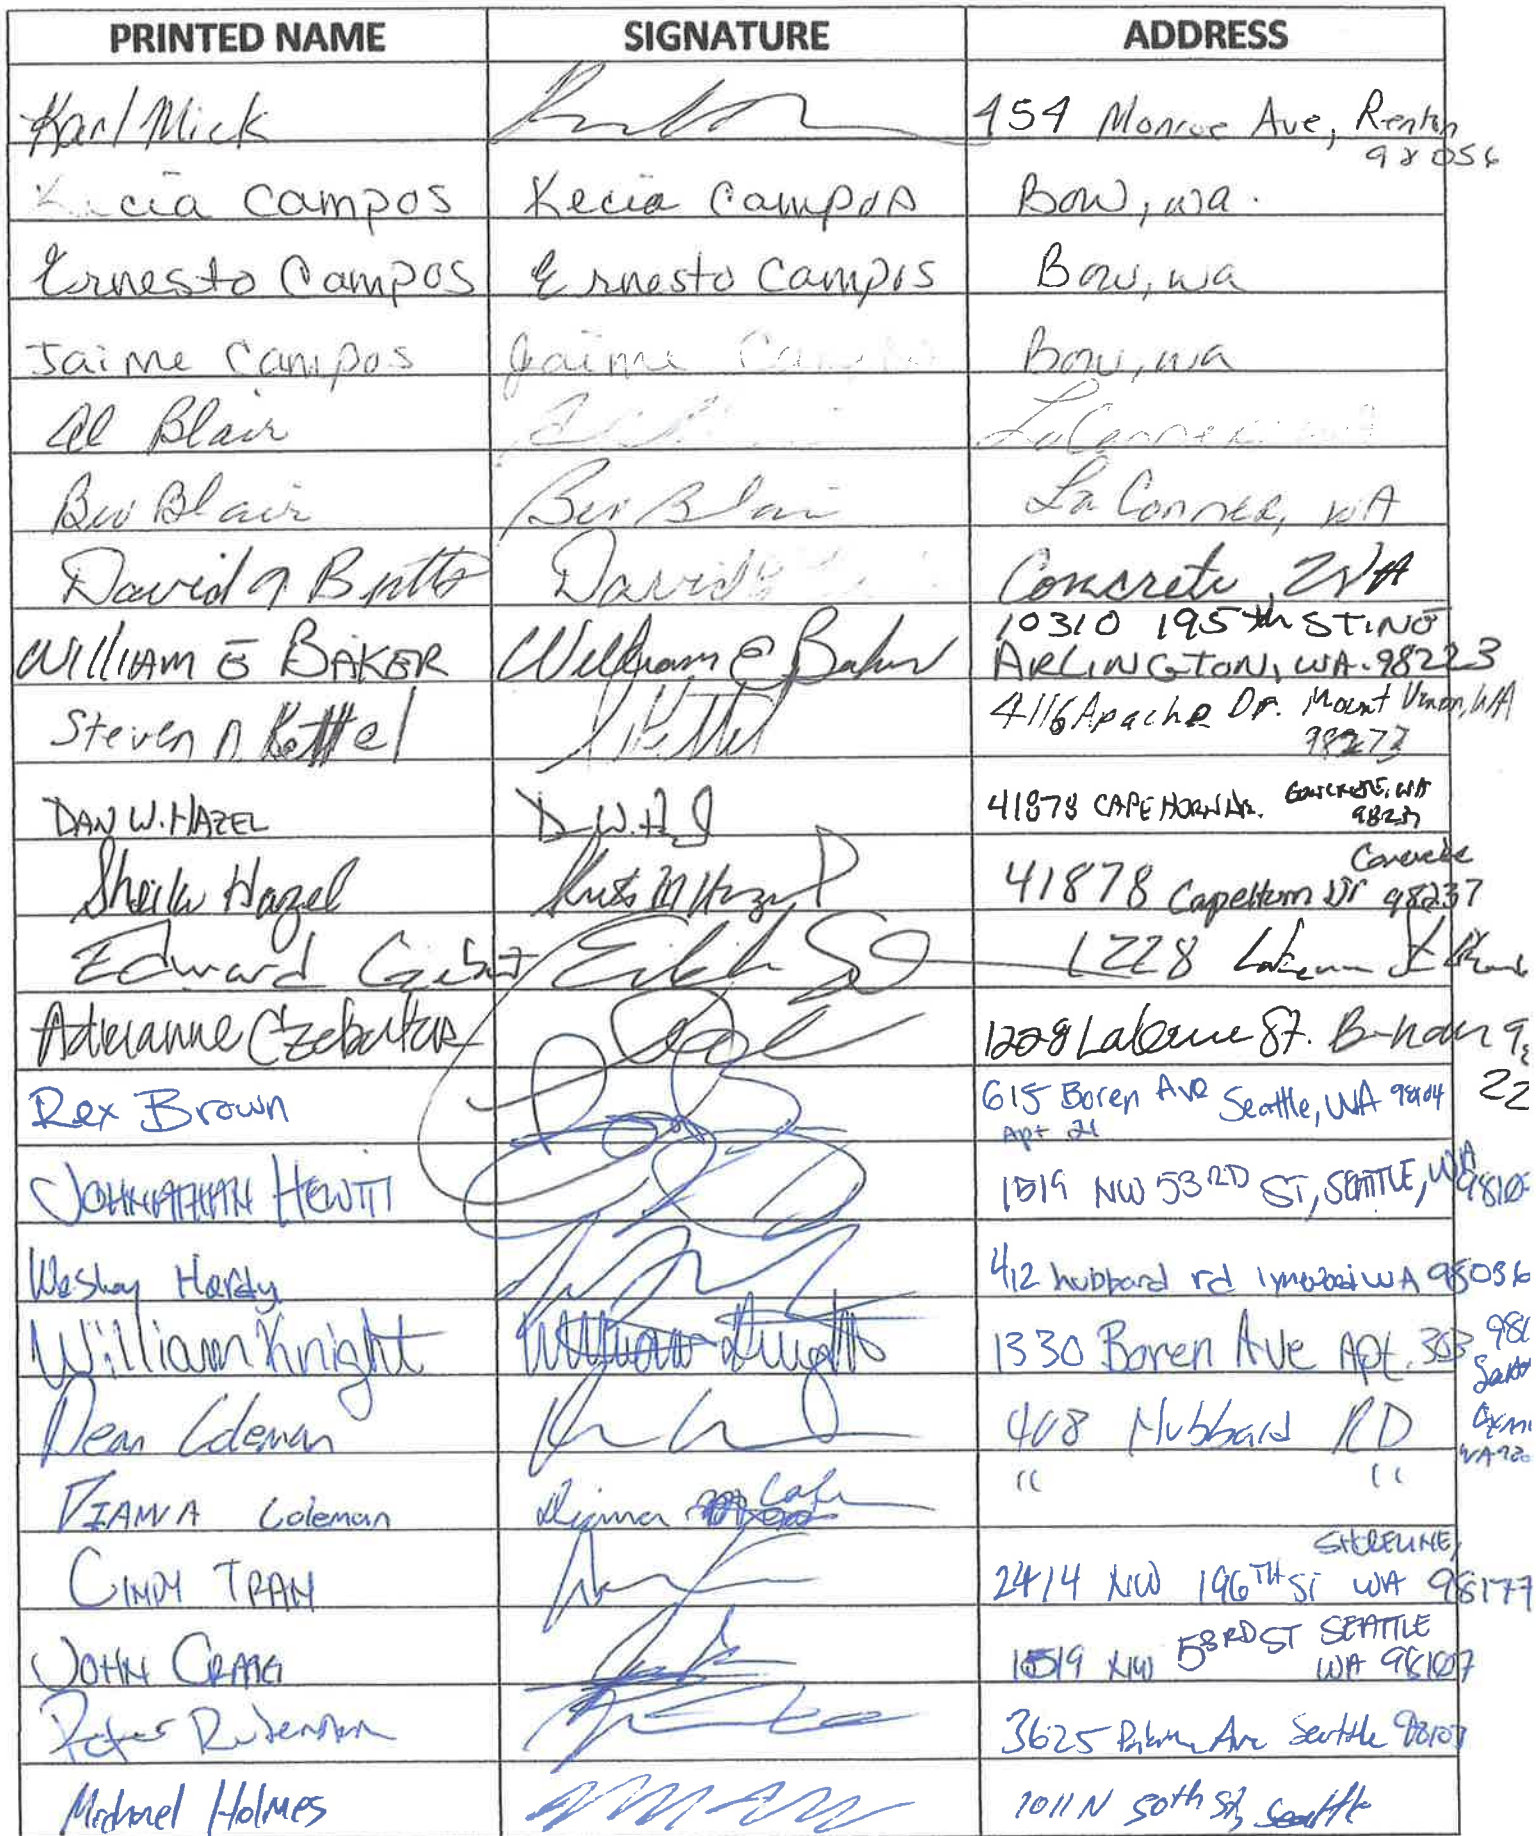 PRINTED NAME SIGNATURE ADDRESS
Karl Mick 454 Monroe Ave, Renton
98056
Kecia Campos Kecia Campos Bow, wa.
Ernesto Campos Ernesto Campos Bow, wa
Jaime Campos Jaime Campos Bow, wa
Al Blair LaConner
Bev Blair Bev Blair La Conner, WA
David David Concrete, WA
WILLIAM E BAKER William E Baker 10310 195th ST. NE
ARLINGTON, WA. 98223
Steven Kettel Kettel 4116 Apache Dr. Mount Vernon, WA
98273
DAN W. HAZEL 41878 CAPE HORN DR. CONCRETE, WA
98237
Sheila Hazel 41878 Cape Horn Dr Concrete
98237
Edward 1228
Adrianne 1228 St. B-ham 9
22
Rex Brown 615 Boren Ave Seattle, WA 98104
Apt 21
JOHNATHAN HEWITT 1519 NW 53RD ST, SEATTLE, WA
Wesley Hardy 412 hubbard rd WA 98036
William Knight William Knight 1330 Boren Ave Apt. 303 981
Dean Coleman 408 Hubbard RD
DIANA Coleman Diana " "
CINDY TRAN 2414 NW 196TH ST SHORELINE,
WA 98177
JOHN CRAIG 1519 NW 53RD ST SEATTLE
WA 98107
Peter 3625 Ave Seattle 98103
Michael Holmes 1011 N 50th St, Seattle